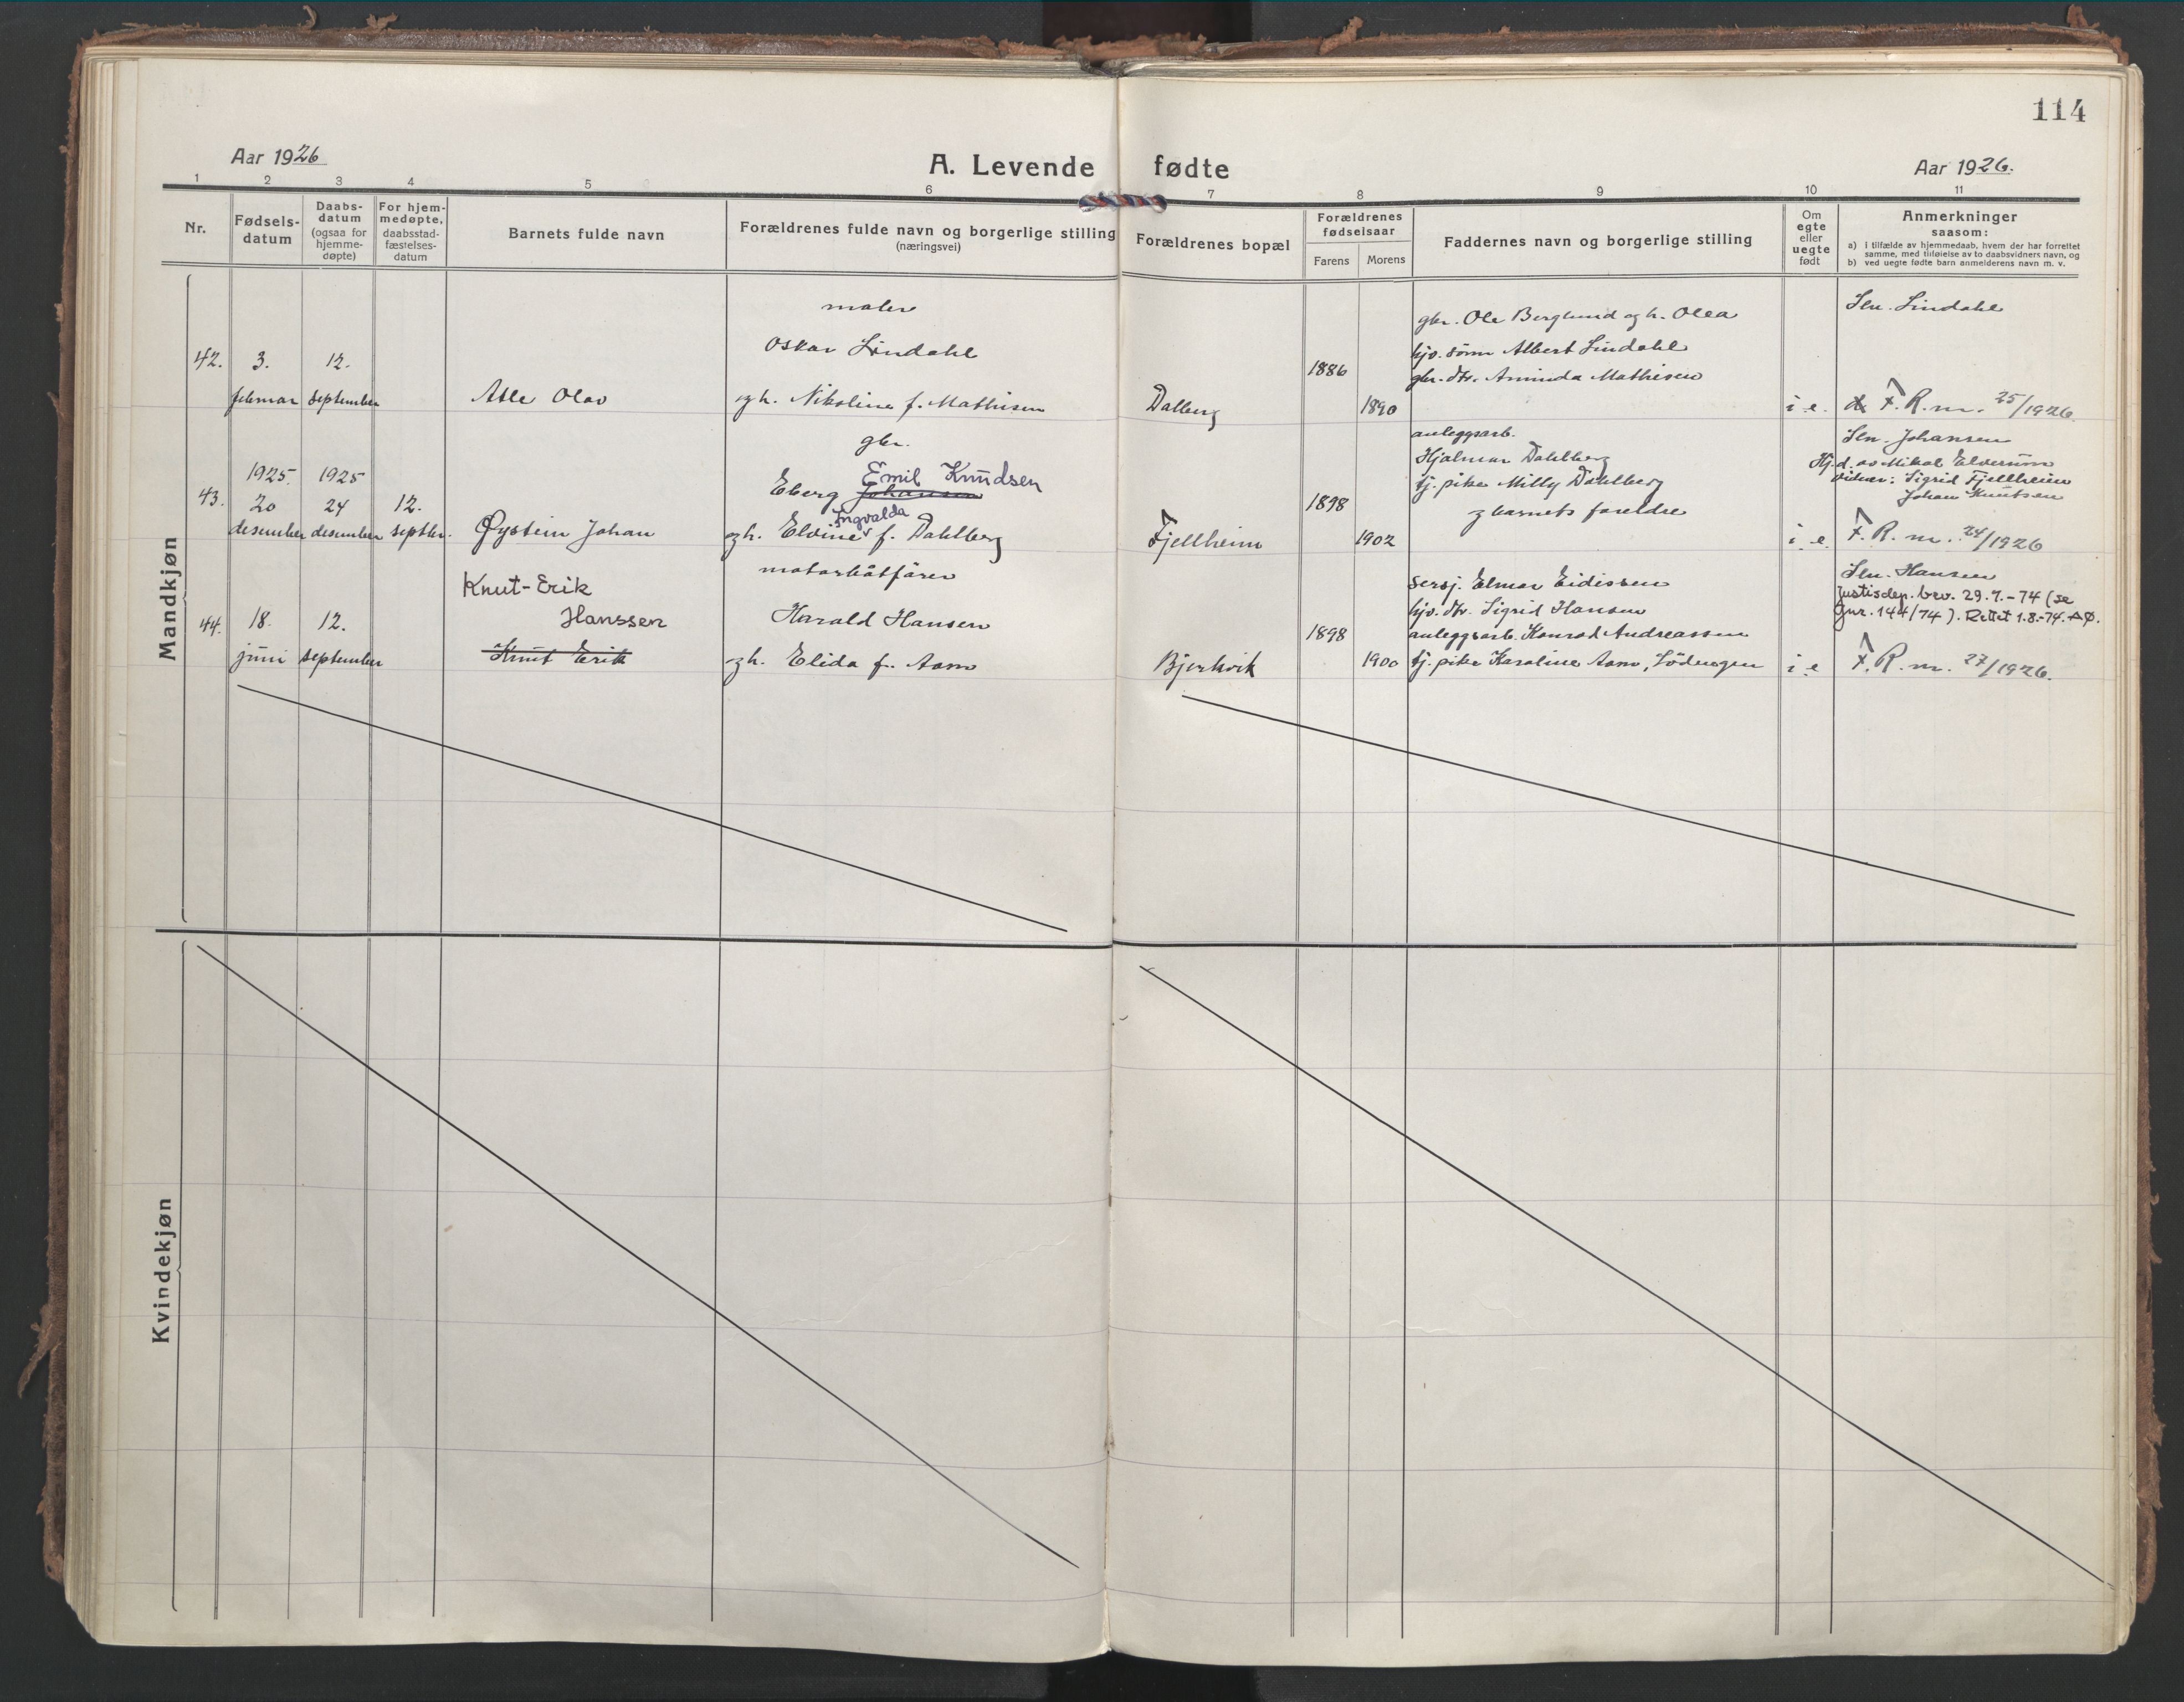 114
Aar 1926
A. Levende fødte
Aar 1926.
1 2 3 4 5 6 7 8 9 10 11
Nr.
Fødsels-
datum
Daabs-
datum
(ogsaa for
hjemme-
døpte)
For hjem-
medøpte,
daabsstad-
fæstelses-
datum
Barnets fulde navn
Forældrenes fulde navn og borgerlige stilling
(næringsvei)
Forældrenes bopæl
Forældrenes
fødselsaar
Farens Morens
Faddernes navn og borgerlige stilling
Om
egte
eller
uegte
født
Anmerkninger
saasom:
a) i tilfælde av hjemmedaab, hvem der har forrettet
samme, med tilføielse av to daabsvidners navn, og
b) ved uegte fødte barn anmelderens navn m. v.
Mandkjøn
42.
3.
februar
12.
september
Atle Olav
maler
Oskar Lindahl
og h. Nikoline f. Mathisen
Dalberg
1886
1890
gbr. Ole Berglund og h. Olea
hjv. sønn Albert Lindahl
gbr. dtr. Aminda Mathisen
i e.
Sen. Lindahl
F. R. m. 25/1926
43.
1925.
20
desember
1925
24
desember
12.
septbr.
Øystein Johan
gbr.
Emil Knudsen
Eberg Johansen
Ingvalda
og h. Elvine f. Dahlberg
Fjellheim
1898
1902
anleggsarb.
Hjalmar Dahlberg
tj. pike Milly Dahlberg
og barnets foreldre
i e.
Sen. Johansen
Hj.d. av Mikal Elverum
Vidner: Sigrid Fjellheim
Johan Knutsen
F. R. m. 24/1926
44.
18.
juni
12.
september
Knut-Erik
Hanssen
Knut Erik
motorbåtfører
Harald Hansen
og h. Elida f. Aam
Bjerkvik
1898
1900
sersj. Elmar Eidissen
hjv. dtr. Sigrid Hansen
anleggsarb. Konrad Andreassen
tj. pike Karoline Aam, Lödingen
i e
Sen. Hansen
Justisdep. brev. 29.7.-74 (se
Jnr. 144/74). Rettet 1.8.-74. AØ.
F. R. m. 27/1926.
Kvindekjøn